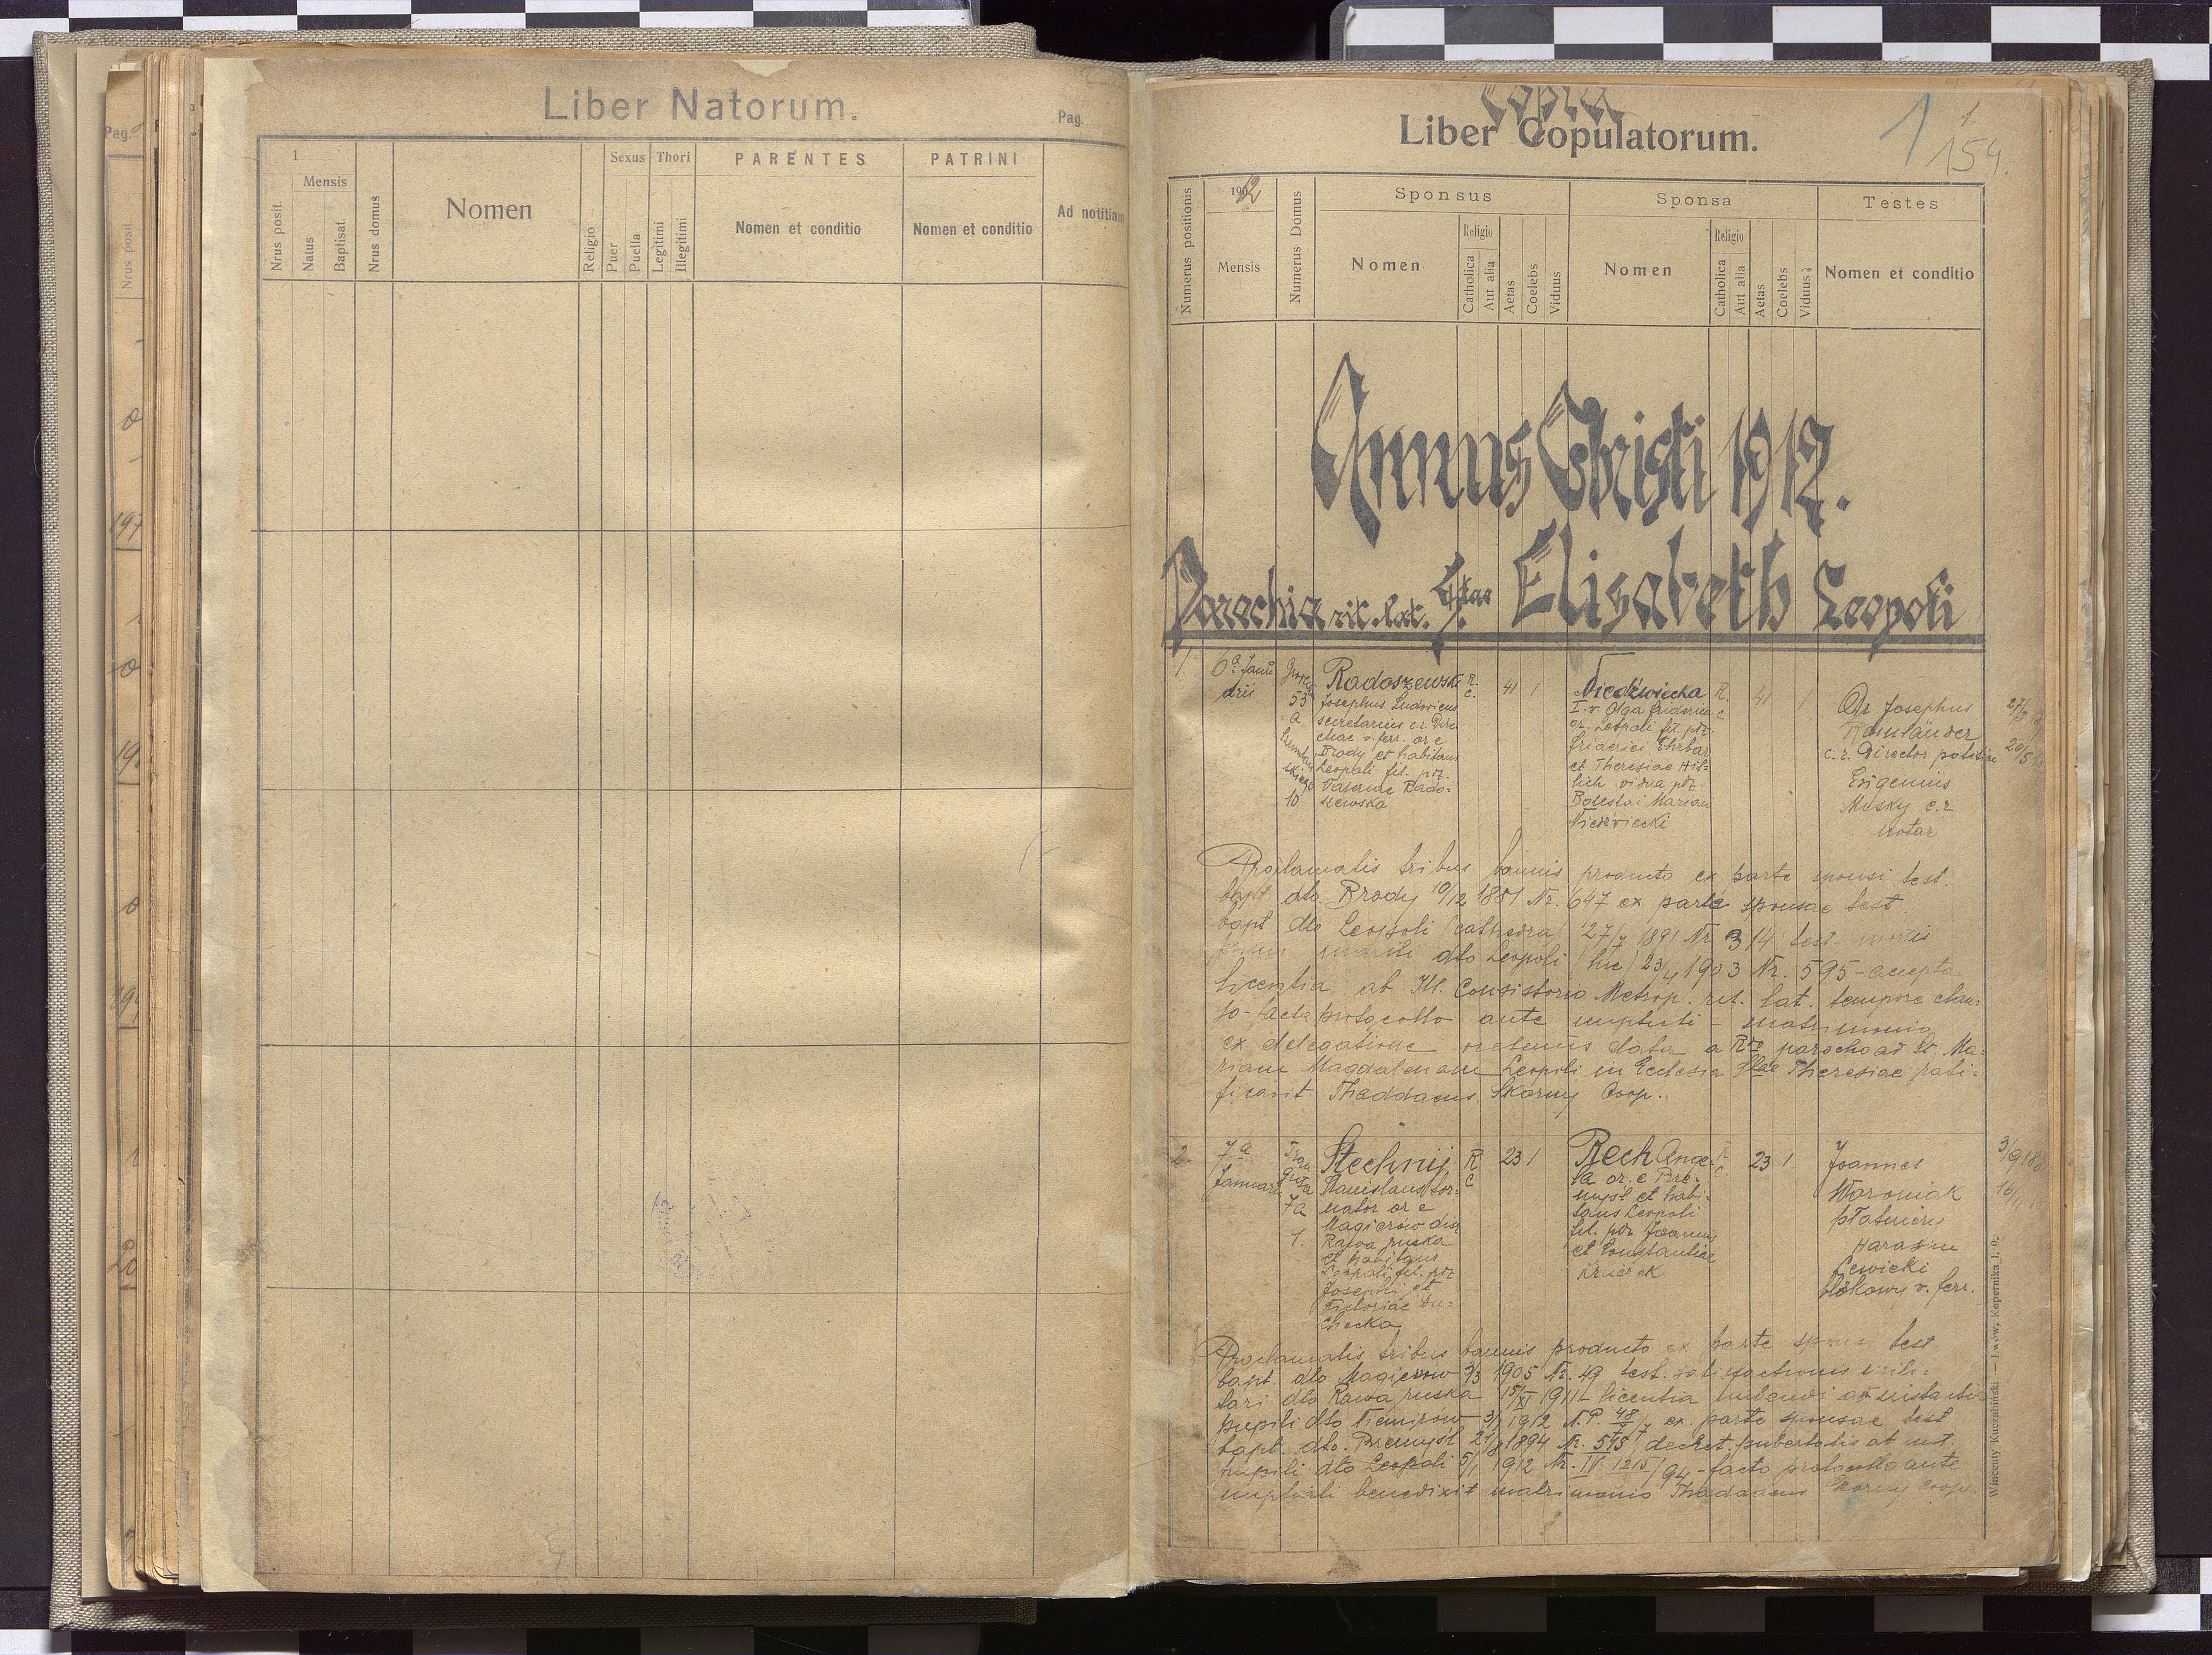 Liber Natorum.
Pag.
Pag.
1
Mensis
Nrus posit.
Natus
Baptisat.
Nrus domus
Nomen
Religio
Sexus
Puer
Puella
Thori
Legitimi
Illegitimi
PARENTES
Nomen et conditio
PATRINI
Nomen et conditio
Ad notitiam
Nrus posit.
197
Copia
Liber Copulatorum.
1
1.
154.
Numerus positionis
1912
Mensis
Numerus Domus
Sponsus
Nomen
Religio
Catholica
Aut alia
Aetas
Coelebs
Viduus
Sponsa
Nomen
Religio
Catholica
Aut alia
Aetas
Coelebs
Viduus
Testes
Nomen et conditio
Annus Christi 1912.
Parochia rit. lat. Stae Elisabeth Leopoli
1
6a Janu
arii
53
a
10
Radoszewski
Josephus Ludovicus
secretarius c.r. Dire
ctiae v. ferr. or e
Brody et habitans
Leopoli fil. ptz
Valeriae Rado-
szewska
R.
c.
41
1
Niedźwiecka
I. v. Olga Friderica
or. Leopoli fil. ptz
Friderici Ehrbar
et Theresiae Hil-
lich vidua ptz
Boleslai Mariani
Niedźwiecki
R.
c
41
1
Dr Josephus
Reinländer
c. r. Director politiae
Eugenius
Musky c. r
notar
Proclamatis tribus bannis producto ex parte sponsi test.
bapt. dto Brody 10/12 1881 Nr. 647 ex parte sponsae test.
bapt dto Leopoli (cathedra) 27/7 1891 Nr 314 test. mortis
primi mariti dto Leopoli (hic) 23/4 1903 Nr. 595 - accepta
licentia ab Ill. Consistorio Metrop. rit. lat. tempore clau-
so - facto protocollo ante nuptiali - matrimonio
ex delegatione oretenus data a Rdo parocho ad St. Ma-
riam Magdalenam Leopoli in Ecclesia Stae Theresiae rati-
ficavit Thaddaeus Skarny Coop.
2.
7a
Januarii
7a
1.
Stechnij
Stanislaus tor-
nator or e
Magierów dis
Rawa ruska
et habitans
Leopoli fil. ptz
Josephi et
Victoriae Du-
checka
R
c
23
1
Rech Ange-
la or. e Prze-
myśl et habi-
tans Leopoli
fil. ptz Joannis
et Constantiae
R
c
23
1
Joannes
Woroniak
płatniczy
Harasim
Lewicki
blokowy v. ferr.
Proclamatis tribus bannis producto ex parte sponsi test
bapt. dto Magierów 3/3 1905 Nr. 49 test. satisfactionis mili-
tari dto Rawa ruska 15/XI 1911 - licentia nubendi ab instantia
pupili dto Niemirów 3/1 1912 N. P. 48/7 ex. parte sponsae test
bapt. dto. Przemyśl 21/8 1894 Nr. 545, decret. pubertatis ab inst.
pupili dto Leopoli 5/1 1912 Nr. IV 1215/94 - facto protocollo ante
nuptiali benedixit matrimonio Thaddaeus Skarny Coop.
Wincenty Kuczabiński — Lwów, Kopernika l. 9.